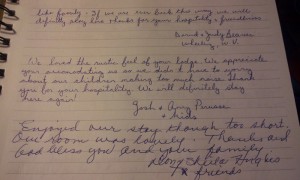 like family. If we are ever back this way we will
definitly stay here. Thanks for your hospitality & friendliness
David & Judy
Wheeling, W.V.
We loved the rustic feel of your lodge. We appreciate
your accomodating us so we didn't have to worry
about our children making too much noise. Thank
you for your hospitality. We will definitely stay
here again!
Josh & Amy
& kids
Enjoyed our stay though too short.
Our room was lovely. Thanks and
God bless you and your family.
Hughes
& friends